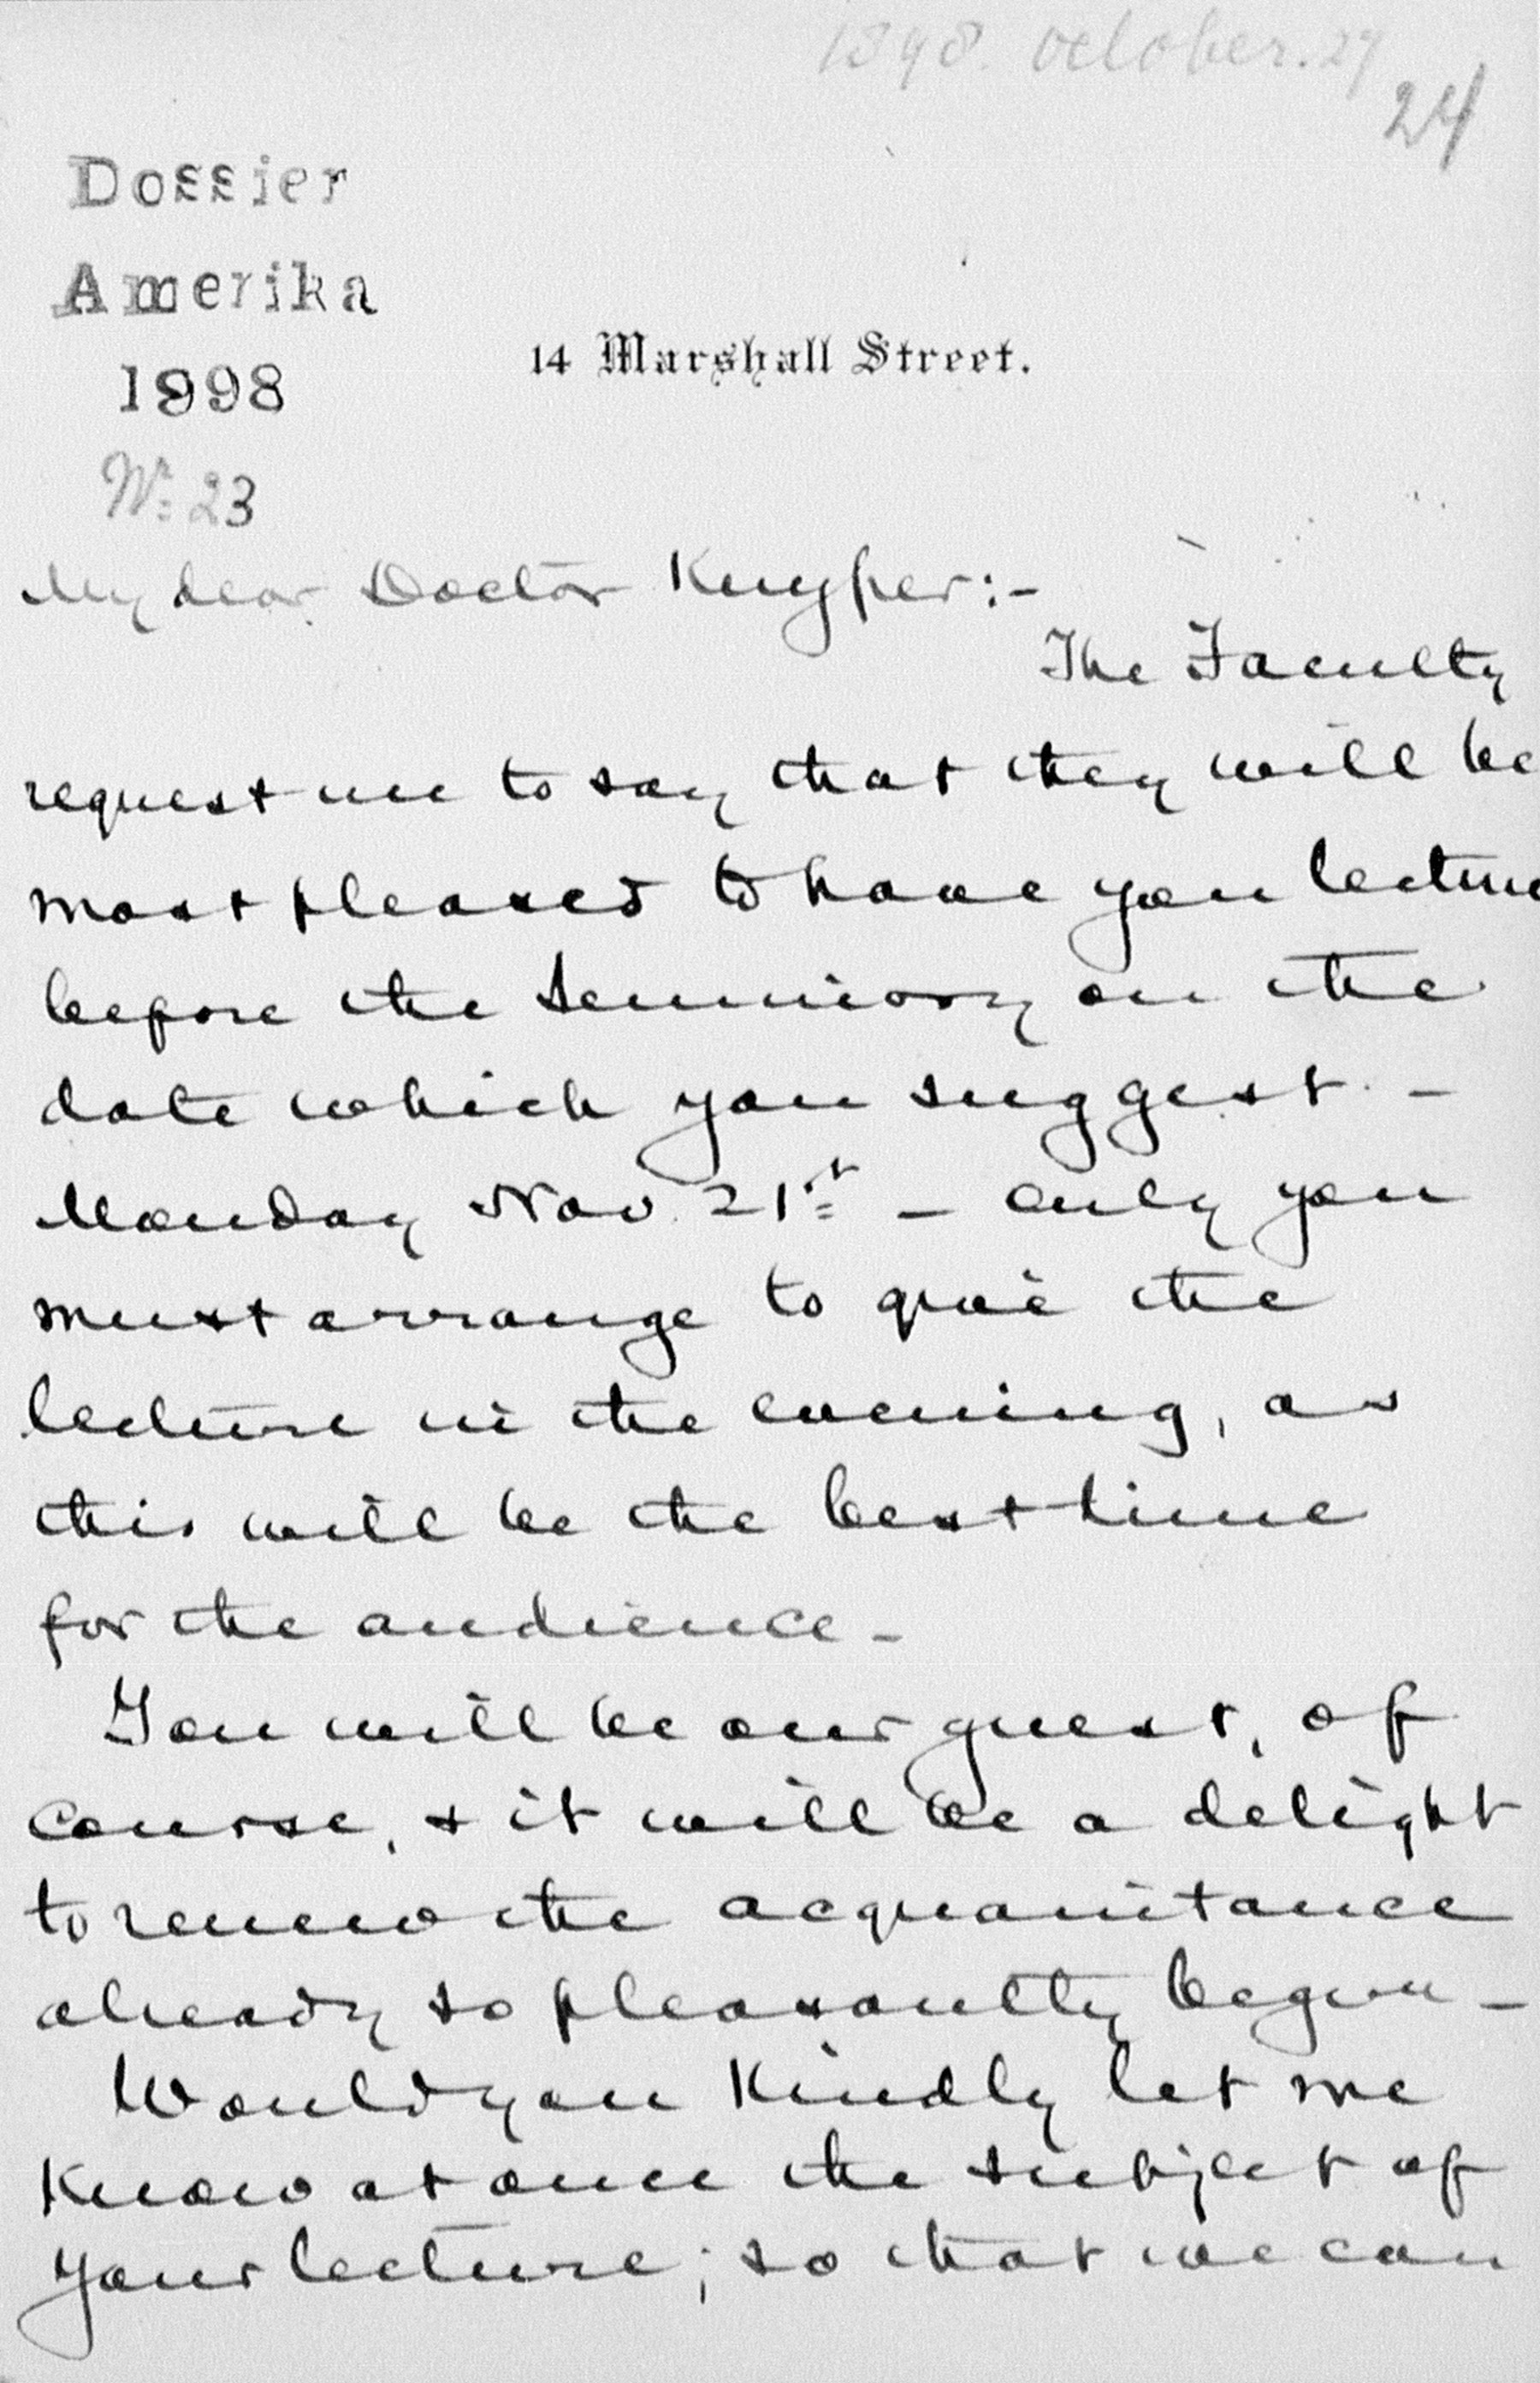 1898. October. 27
24
Dossier
Amerika
1998
14 Marshall Street.
Nr. 23
My dear Doctor Kuyper:-
The Faculty
request me to say that they will be
most pleased to have you lecture
before the Seminary on the
date which you suggest -
Monday Nov. 21st - only you
must arrange to give the
lecture in the evening, as
this will be the best time
for the audience -
You will be our guest, of
course, & it will be a delight
to renew the acquaintance
already so pleasantly begun -
Would you kindly let me
know at once the subject of
your lecture; so that we can